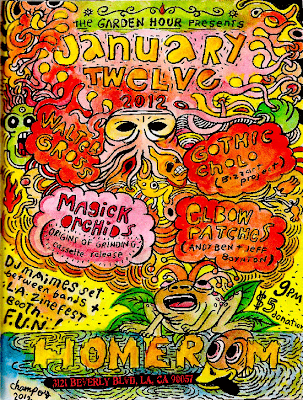 THE GARDEN HOUR PRESENTS
JANUARY
TWELVE
2012
WALTER
GROSS
GOTHIC
CHOLO
(Bizzart
project)
MAGICK
ORCHIDS
(ORIGINS OF GRINDING
Cassette release)
ELBOW
PATCHES
(ANDY BEN + JEFF
Dunaimes set
between bands +
L.A. ZINEFEST
BOOTH!
F.U.N.
9pm
$5
donation
HOMEROOM
3121 BEVERLY BLVD, LA, CA 90057
Champoy
2012